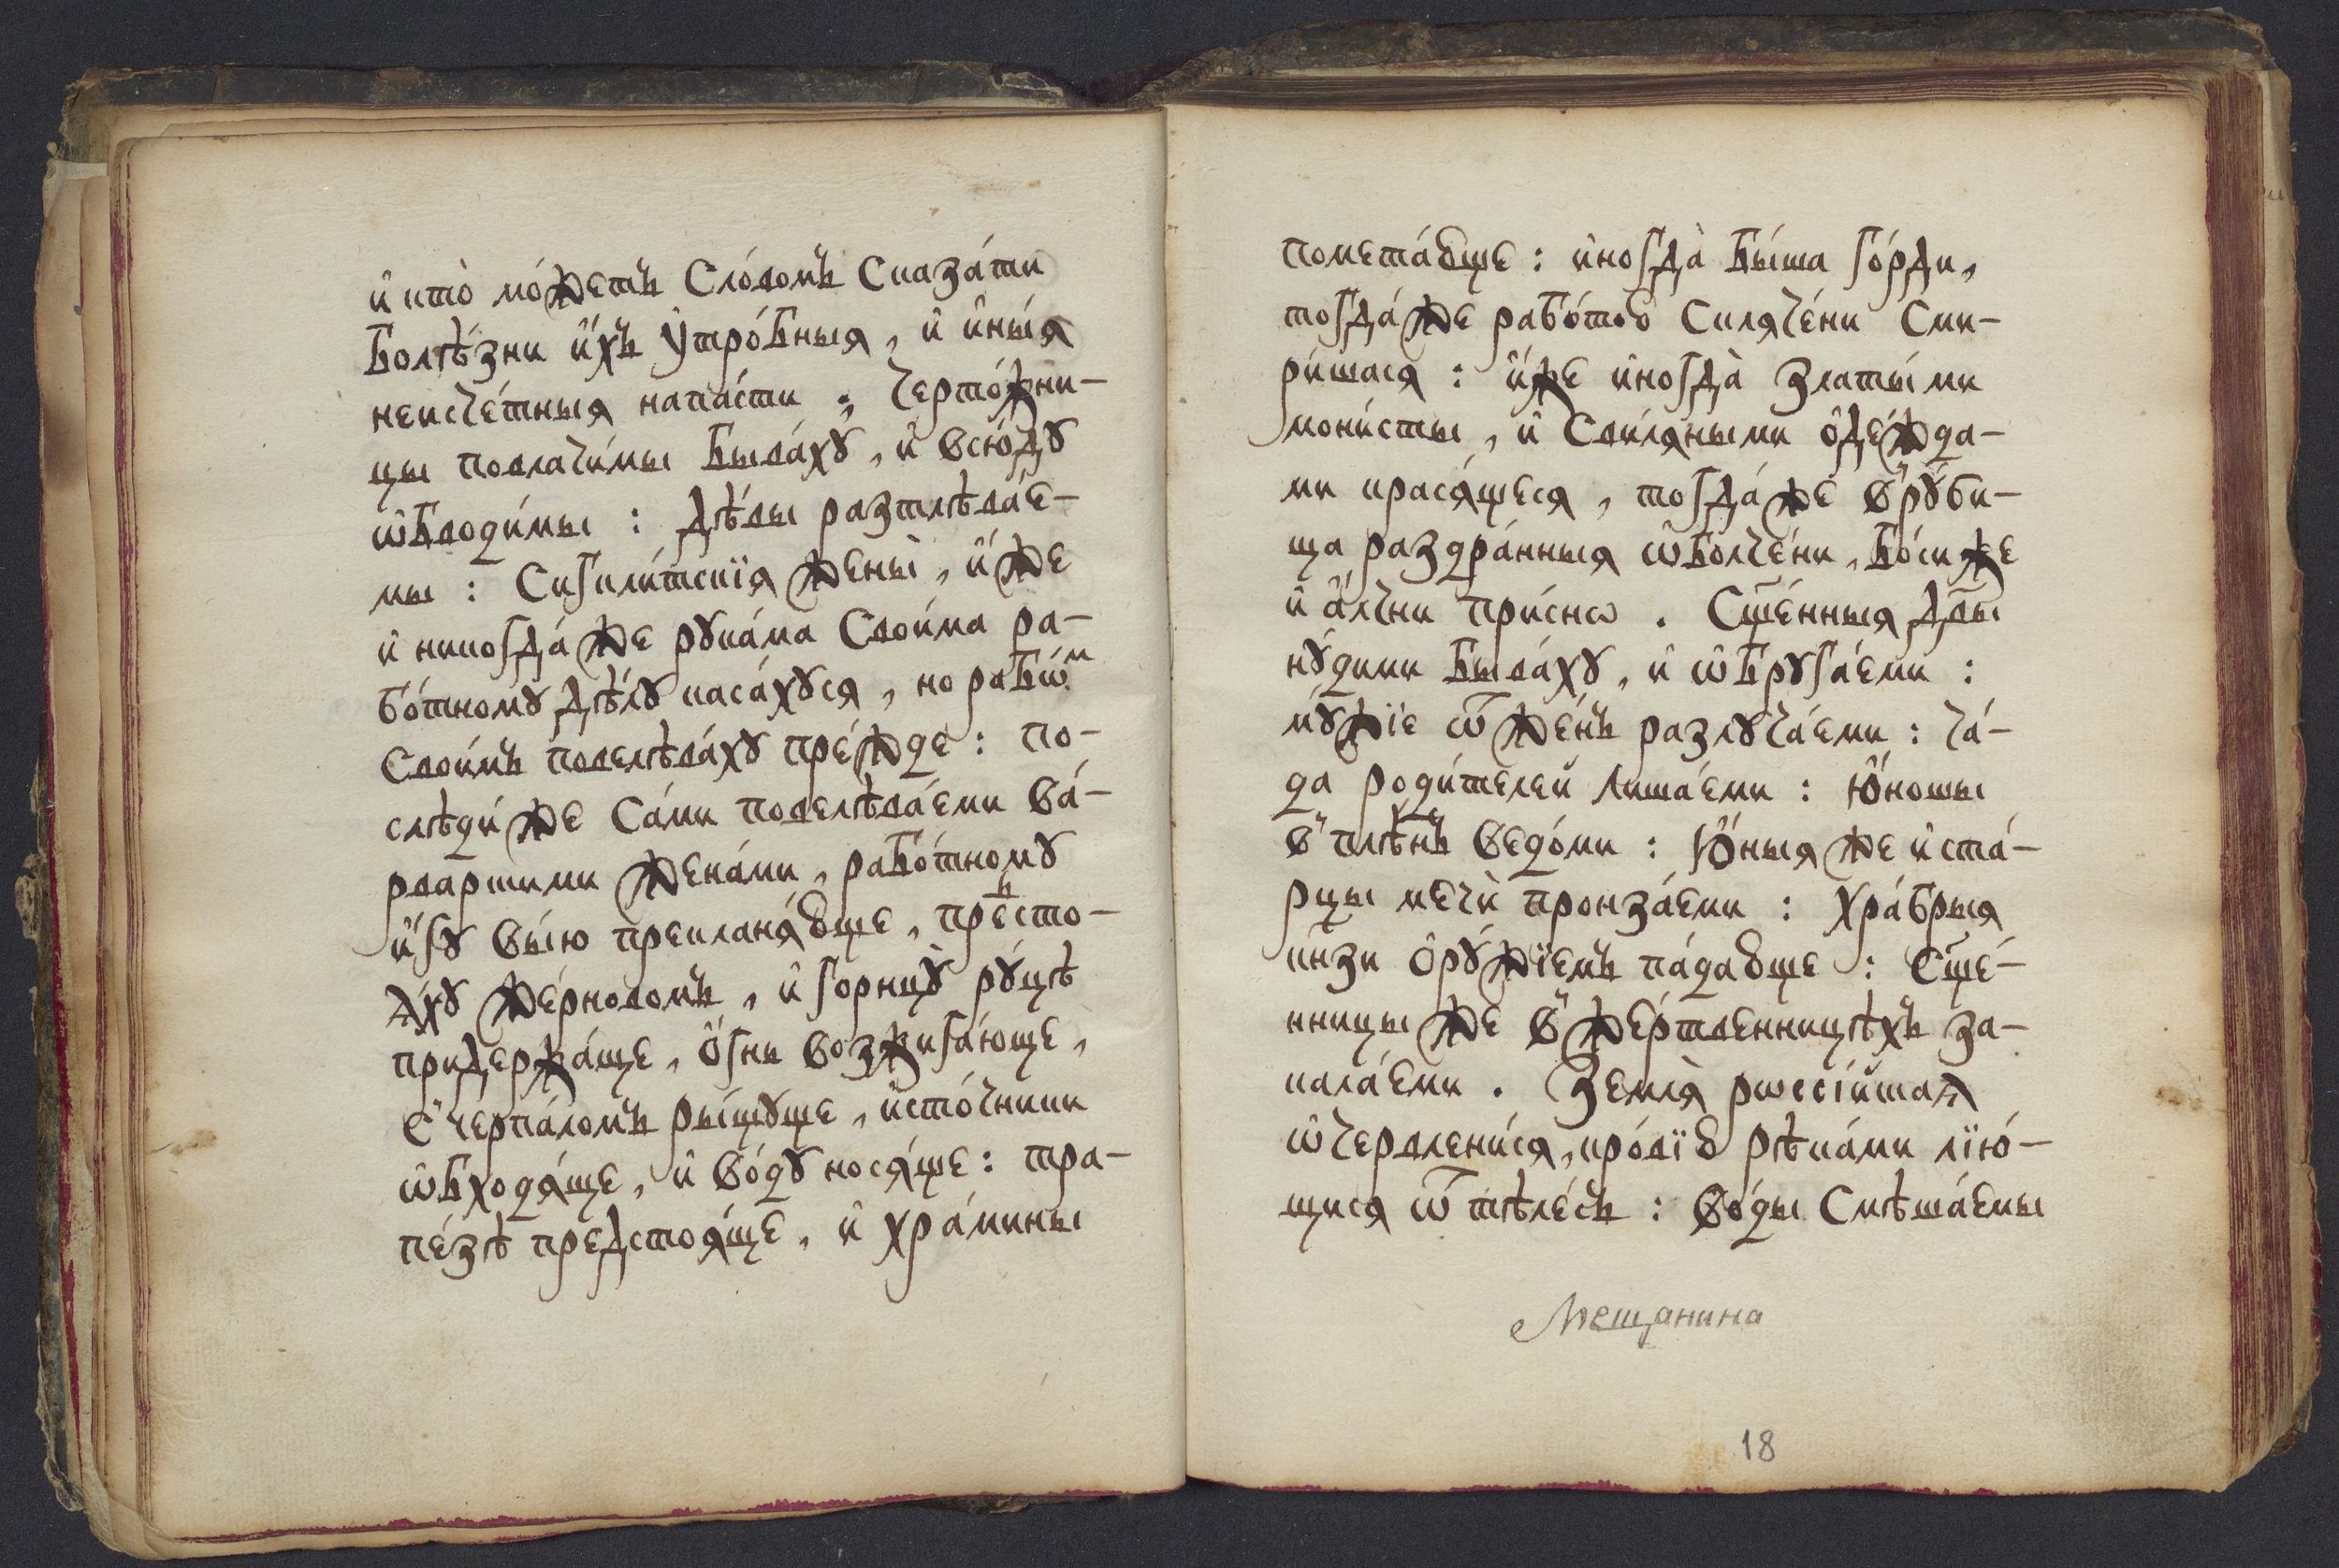 и҆ кто̀ мо́жетъ сло́вомъ сказа́ти
болѣ́зни и҆́хъ ᲂу҆тро́бныя, и҆ и҆ны́я
неисче́тныя напа́сти: черто́жни-
цы повлачи́мы быва́хꙋ, и҆ всю́дꙋ
ѡ҆бводи́мы: дѣ́вы разтлѣва́е-
мы: сигкли́тскїя жены̀, и҆́же
и҆ никогда́ же рꙋка́ма свои́ма ра-
бо́тномꙋ дѣ́лꙋ каса́хꙋся, но рабѡ́м
свои́мъ повелѣва́хꙋ пре́жде: по-
слѣди́ же са́ми повелѣва́еми ва́-
рварскими жена́ми, рабо́тномꙋ
и҆́гꙋ вы́ю преклоня́вще, пре́дсто-
ѧ́хꙋ же́рновомъ, и҆ горнцꙋ̀ рꙋ́цѣ
придержа́ще, ѻ҆́гнь возжига́юще,
с̾ черпа́ломъ ры́щꙋще, и҆сто́чники
ѡ҆бходя́ще, и҆ во́дꙋ нося́ще: тра-
пе́зѣ предстоя́ще, и҆ хра́мины
помета́вще: и҆ногда̀ бы́ша го́рди,
тогда́ же рабо́тою сляче́ни сми-
ри́шася: и҆́же и҆ногда̀ златы́ми
мони́сты, и҆ сви́ляными ѻ҆де́жда-
ми крася́щеся, тогда́ же в̾ рꙋ́би-
ща раздра́нныя ѡ҆болче́ни, бо́си же
и҆ а҆́лчни при́снѡ. Сще́нныя дв҃ы
нꙋ́дими быва́хꙋ, и҆ ѡ҆брꙋга́еми:
мꙋ́жїе ѿ же́нъ разлꙋча́еми: ча́-
да роди́телей лиша́еми: ю҆́ношы
в̾ плѣ́нъ ведо́ми: ю҆́ныя же и҆ ста́-
рцы мечи̑ пронза́еми: хра́брыя
кн҃зи ѻ҆рꙋ́жїемъ па́давще: сще́-
нницы же в̾ же́ртвенницѣхъ за-
кала́еми. Земля̀ рѡссі́йскаѧ
ѡ҆червлени́ся, кро́вїю рѣка́ми лїю́-
щися ѿ тѣле́съ: во́ды смѣша́емы
Мещанина
18